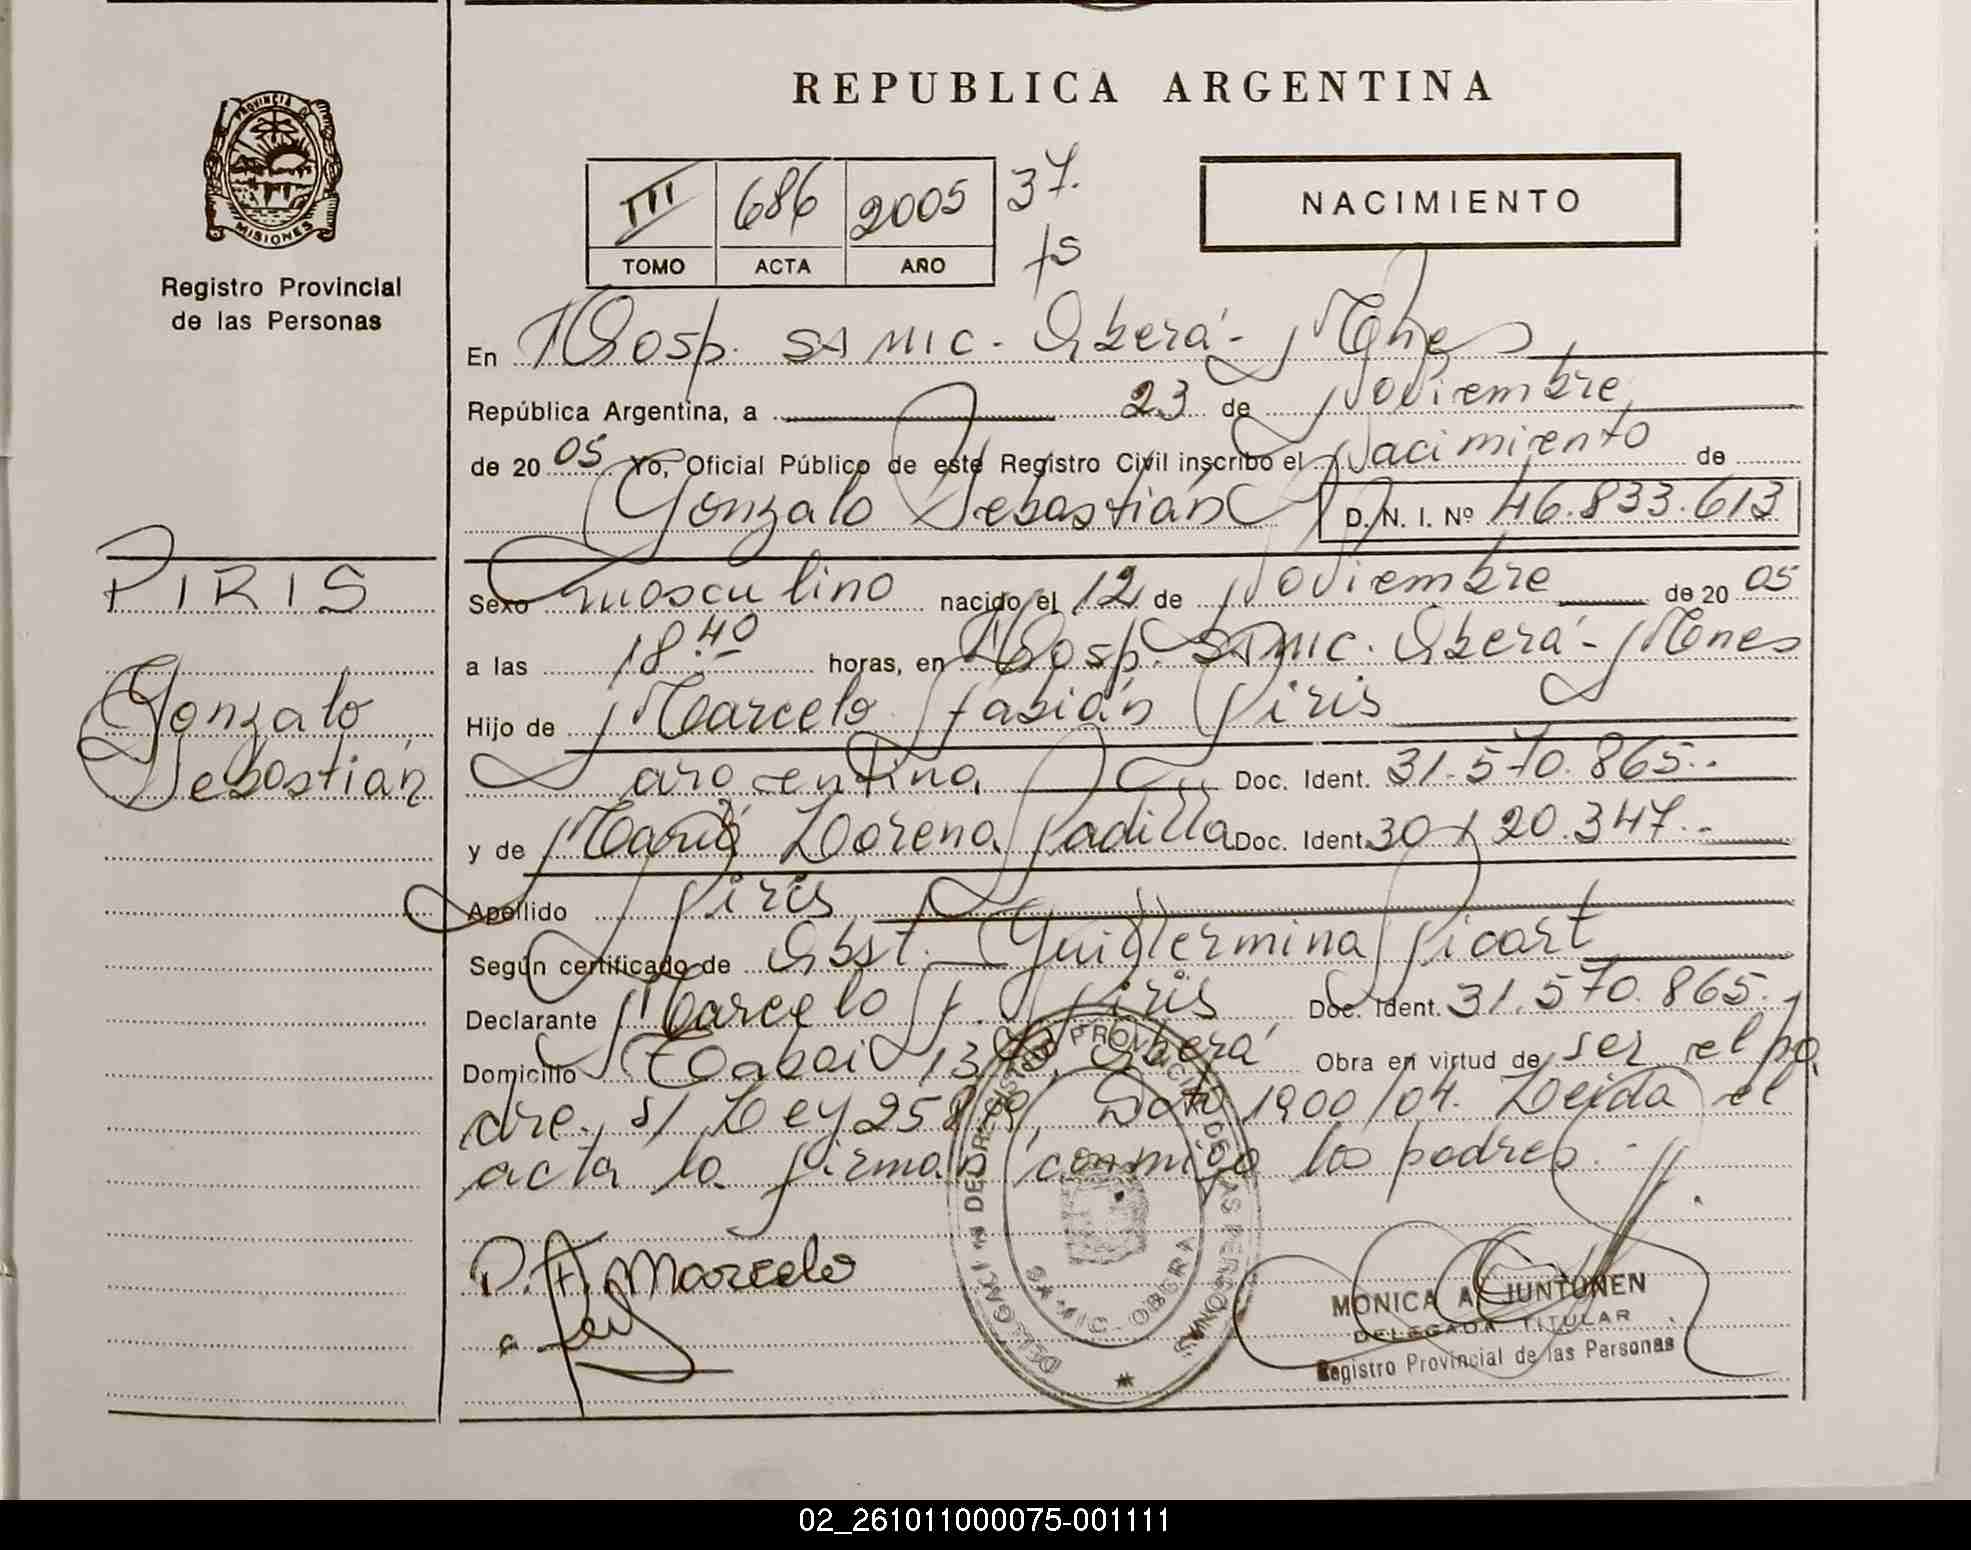 REPUBLICA ARGENTINA
PROVINCIA DE
MISIONES
Registro Provincial
de las Personas
III 686 2005 37.
TOMO ACTA AÑO fs
NACIMIENTO
En Hosp. SAMIC. Oberá - Mnes
República Argentina, a 23 de Noviembre
de 20 05 Yo, Oficial Público de este Registro Civil inscribo el Nacimiento de
Gonzalo Sebastián D. N. I. Nº 46.833.613
PIRIS
Gonzalo
Sebastián
Sexo masculino nacido el 12 de Noviembre de 20 05
a las 18.40 horas, en Hosp. SAMIC. Oberá - Mnes
Hijo de Marcelo Fabián Piris
argentina Doc. Ident. 31.570.865.-
y de María Lorena Padilla Doc. Ident. 30.120.347.-
Apellido Piris
Según certificado de Obst. Guillermina Picart
Declarante Marcelo F. Piris Doc. Ident. 31.570.865.
Domicilio Oberá Obra en virtud de ser el pa
dre. s/ Ley 1900/04. Leída el
acta la firman conmigo los padres.-
P. F. Marcelo
DELEGACION DEL REGISTRO PROVINCIAL DE LAS PERSONAS
SAMIC - OBERA
MONICA A. JUNTUNEN
DELEGADA TITULAR
Registro Provincial de las Personas
02_261011000075-001111